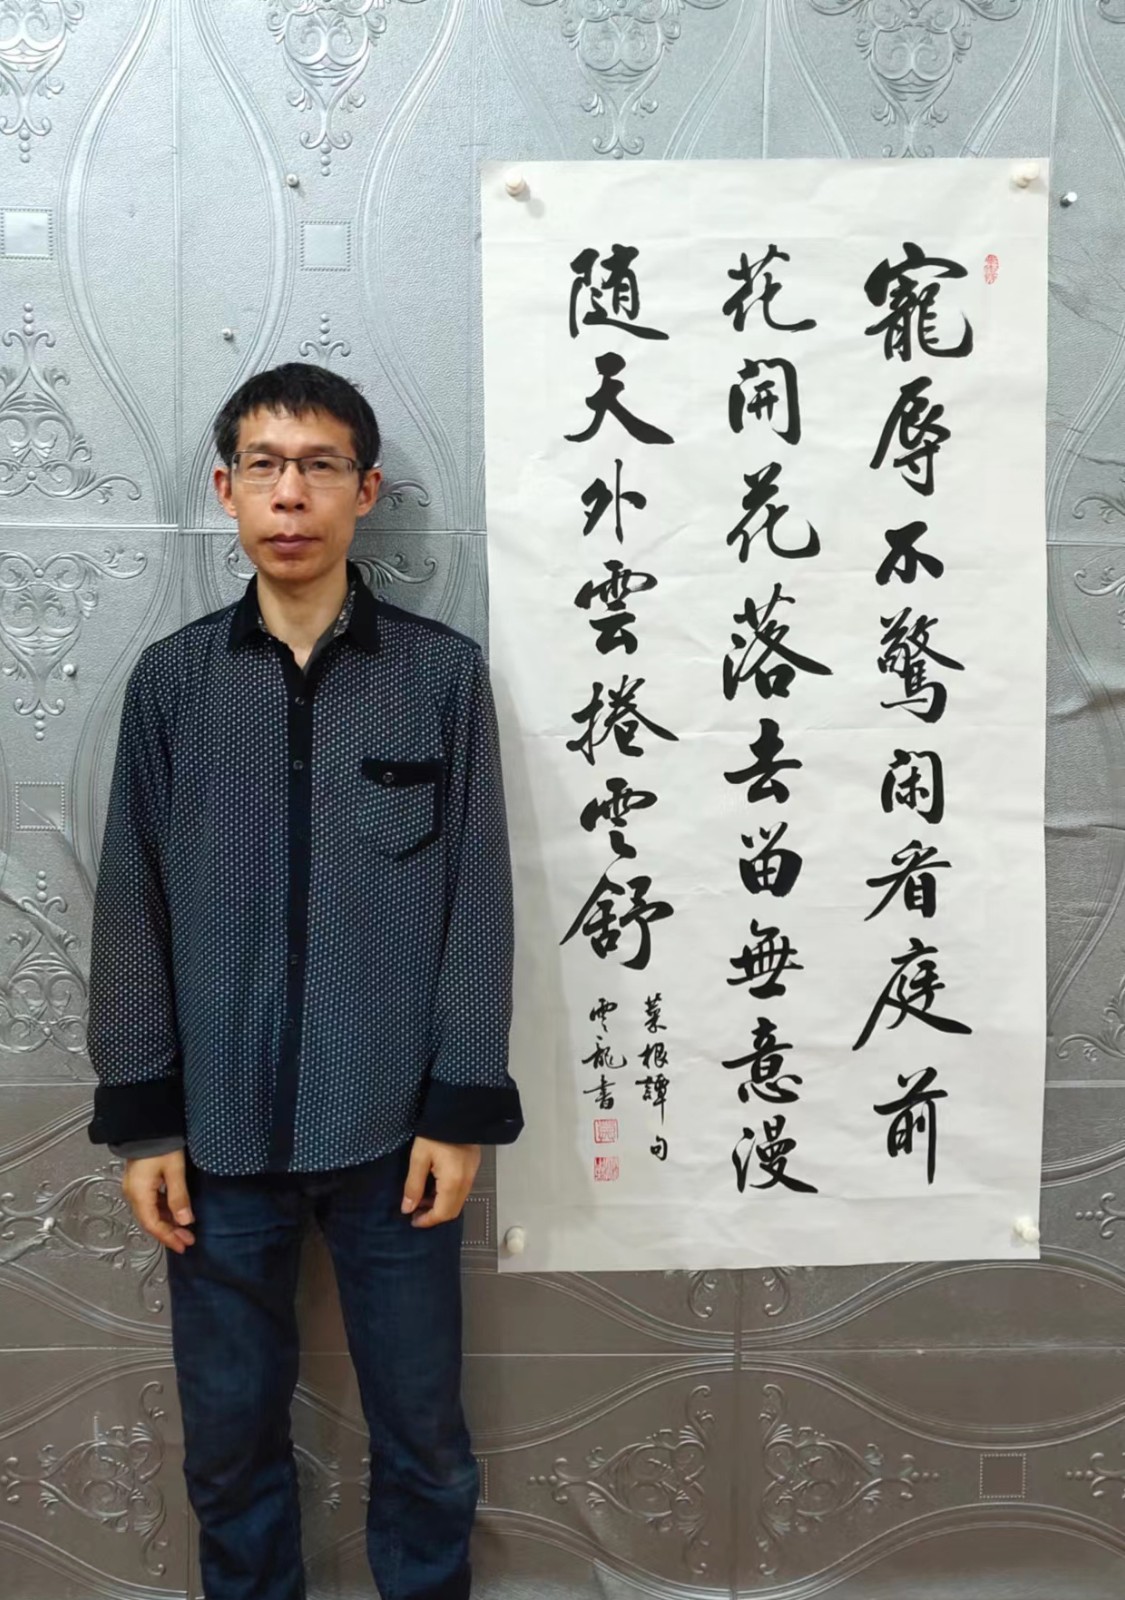 寵辱不驚閑看庭前
花開花落去留無意漫
随天外雲捲雲舒
菜根譚句
雲龍書